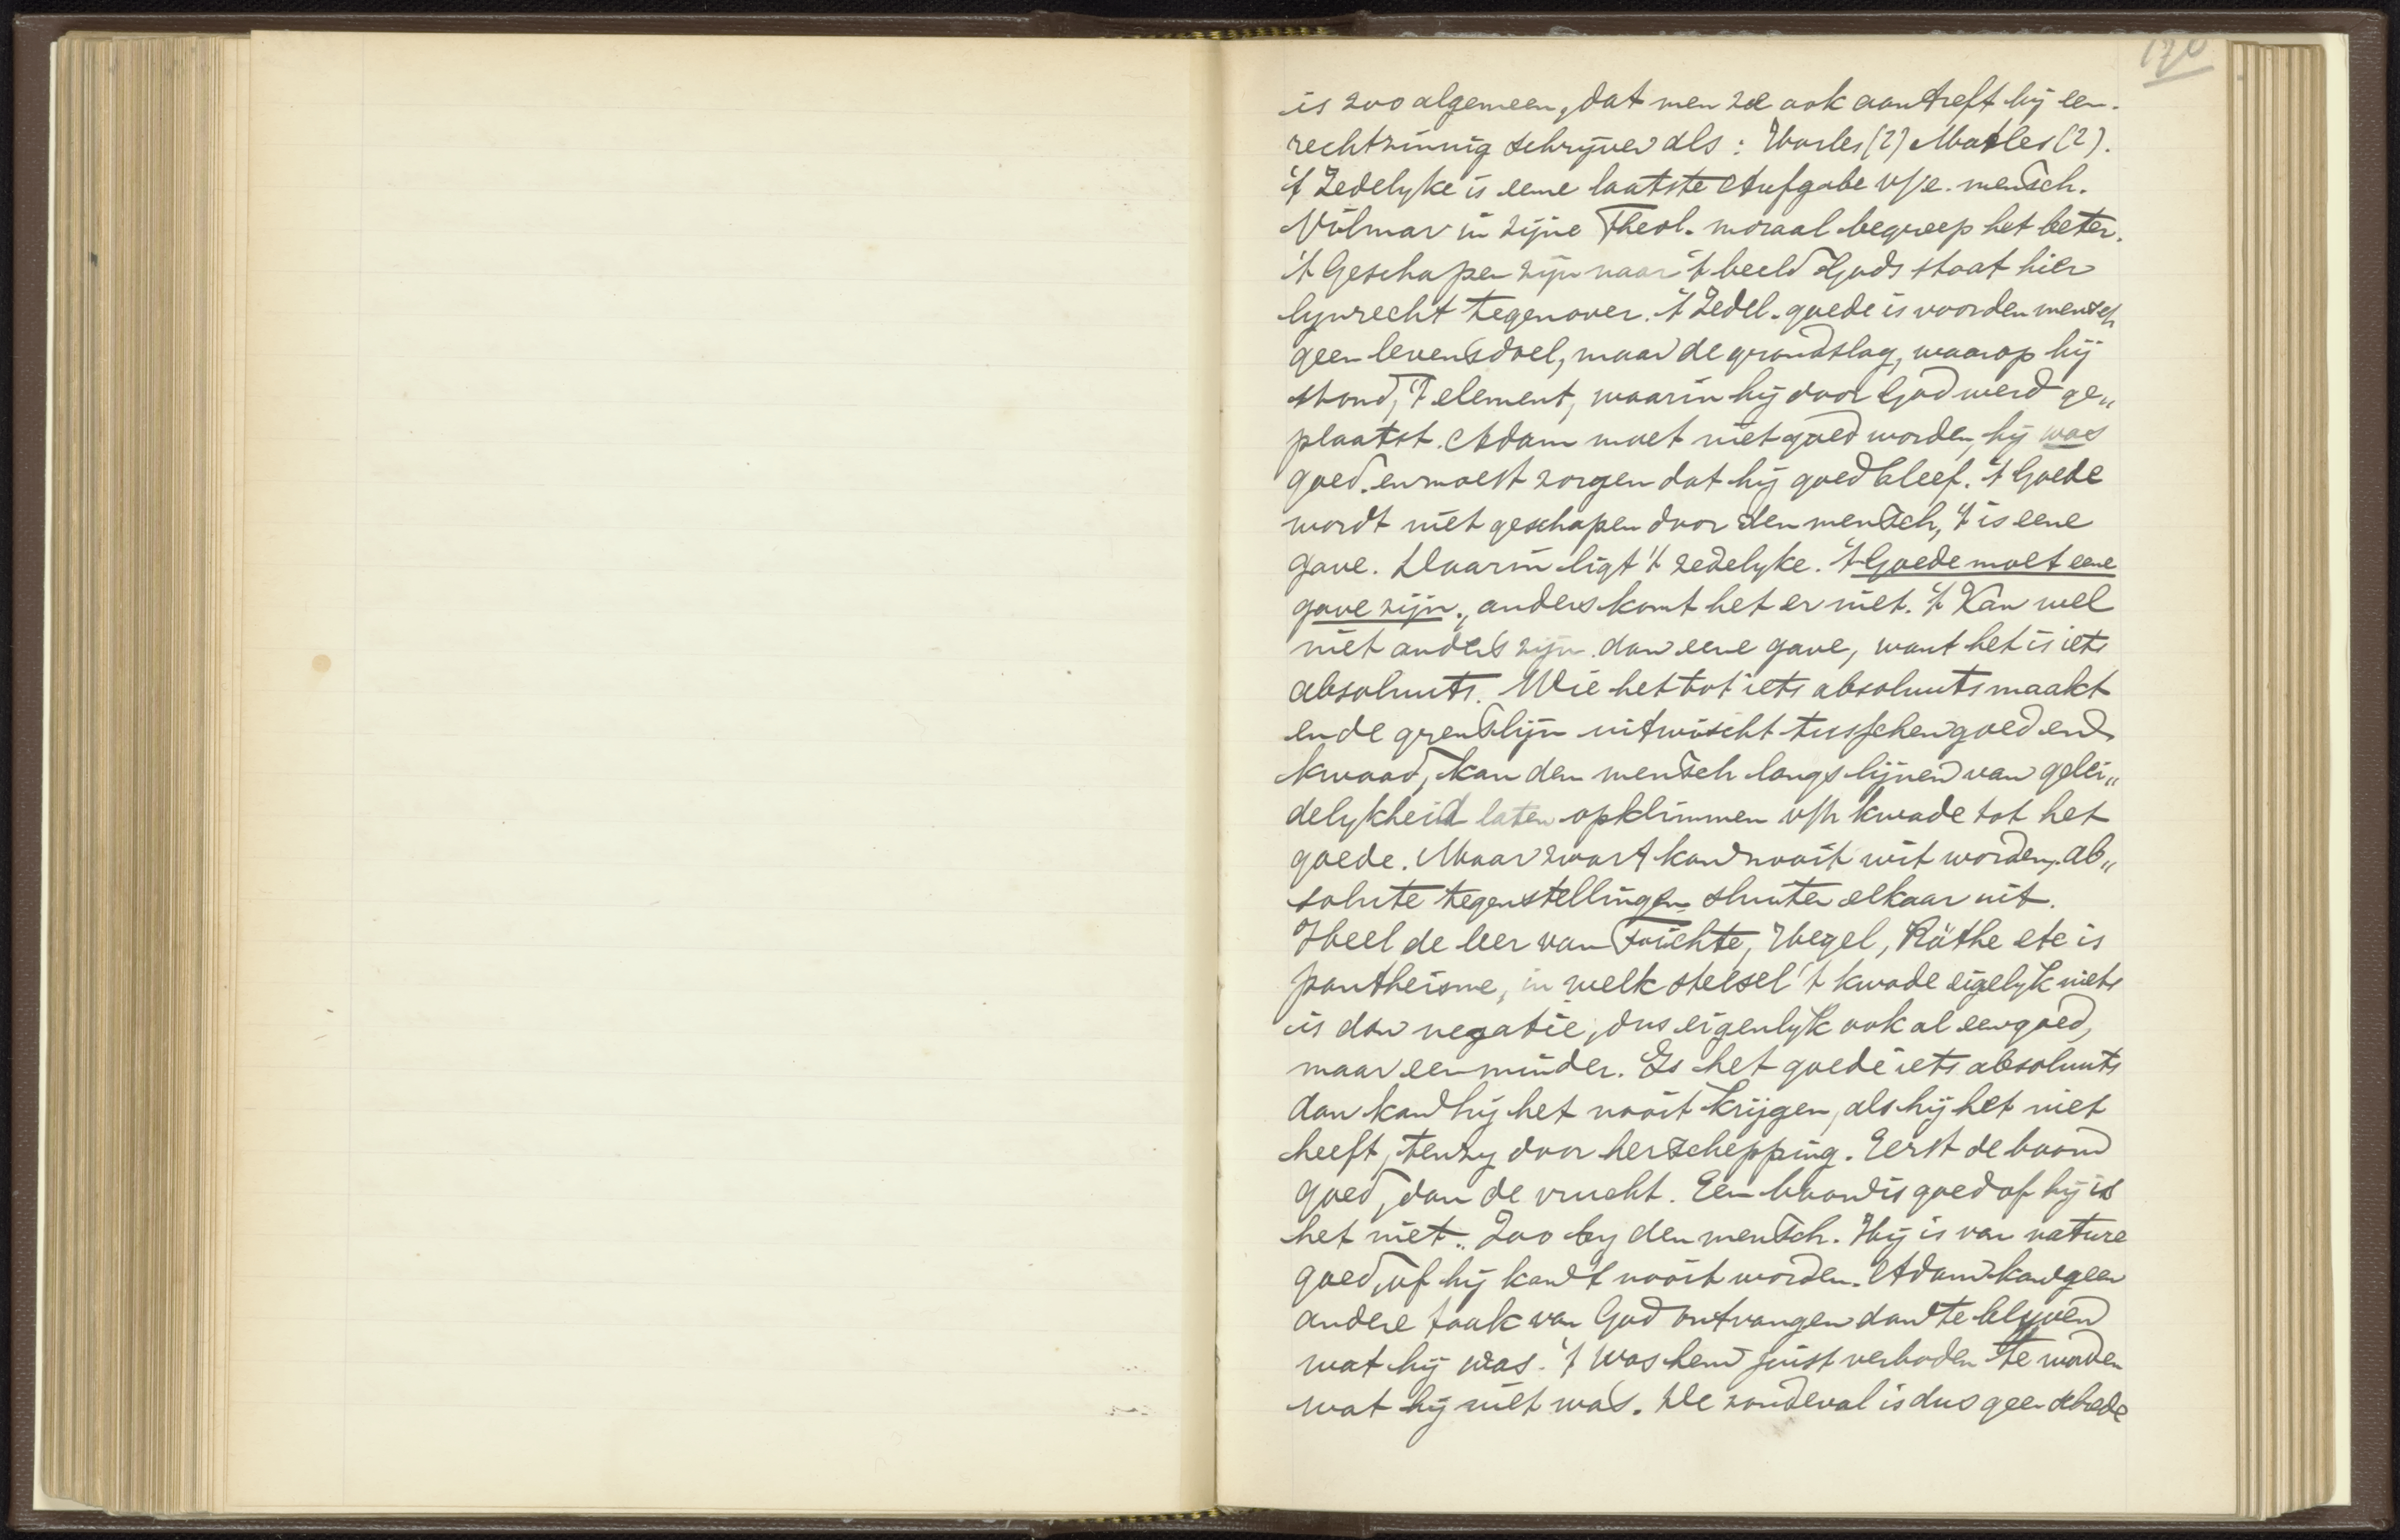 120
is zoo algemeen, dat men ze ook aantreft bij een
rechtzinnig schryver als: Harles (?) Matles (?).
't Zedelyke is eene laatste Aufgabe v/e. mensch.
Vilmar in zijne Theol. moraal begreep het beter.
't Geschapen zijn naar 't beeld Gods staat hier
lynrecht tegenover. 't Zedel. goede is voor den mensch
geen levensdoel, maar de grondslag, waarop hij
stond, 't element, waarin hij door God werd ge„
plaatst. Adam moet niet goed worden, hij was
goed. en moest zorgen dat hij goed bleef. 't Goede
wordt niet geschapen door den mensch, 't is eene
gave. Daarin ligt 't zedelyke. 't Goede moet eene
gave zijn., anders komt het er niet. 't Kan wel
niet anders zijn dan eene gave, want het is iets
absoluuts. Wie het tot iets absoluuts maakt
en de grenslijn uitwischt tusschen goed en
kwaad, kan den mensch langs lijnen van gelei„
delykheid laten opklimmen v/h kwade tot het
goede. Maar zwart kan nooit wit worden, ab„
solute tegenstellingen sluiten elkaar uit.
Heel de leer van Fichte, Hegel, Röthe etc is
pantheisme, in welk stelsel 't kwade eigelyk niets
is dan negatie, dus eigenlyk ook al een goed,
maar een minder. Is het goede iets absoluuts
dan kan hij het nooit krijgen, als hij het niet
heeft, tenzy door herschepping. Eerst de boom
goed, dan de vrucht. Een boom is goed of hij is
het niet. Zoo by den mensch. Hij is van nature
goed, of hij kan 't nooit worden. Adam kan geen
andere taak van God ontvangen dan te blyven
wat hij was. 't Was hem juist verboden te worden
wat hij niet was. De zondeval is dus geen schrede